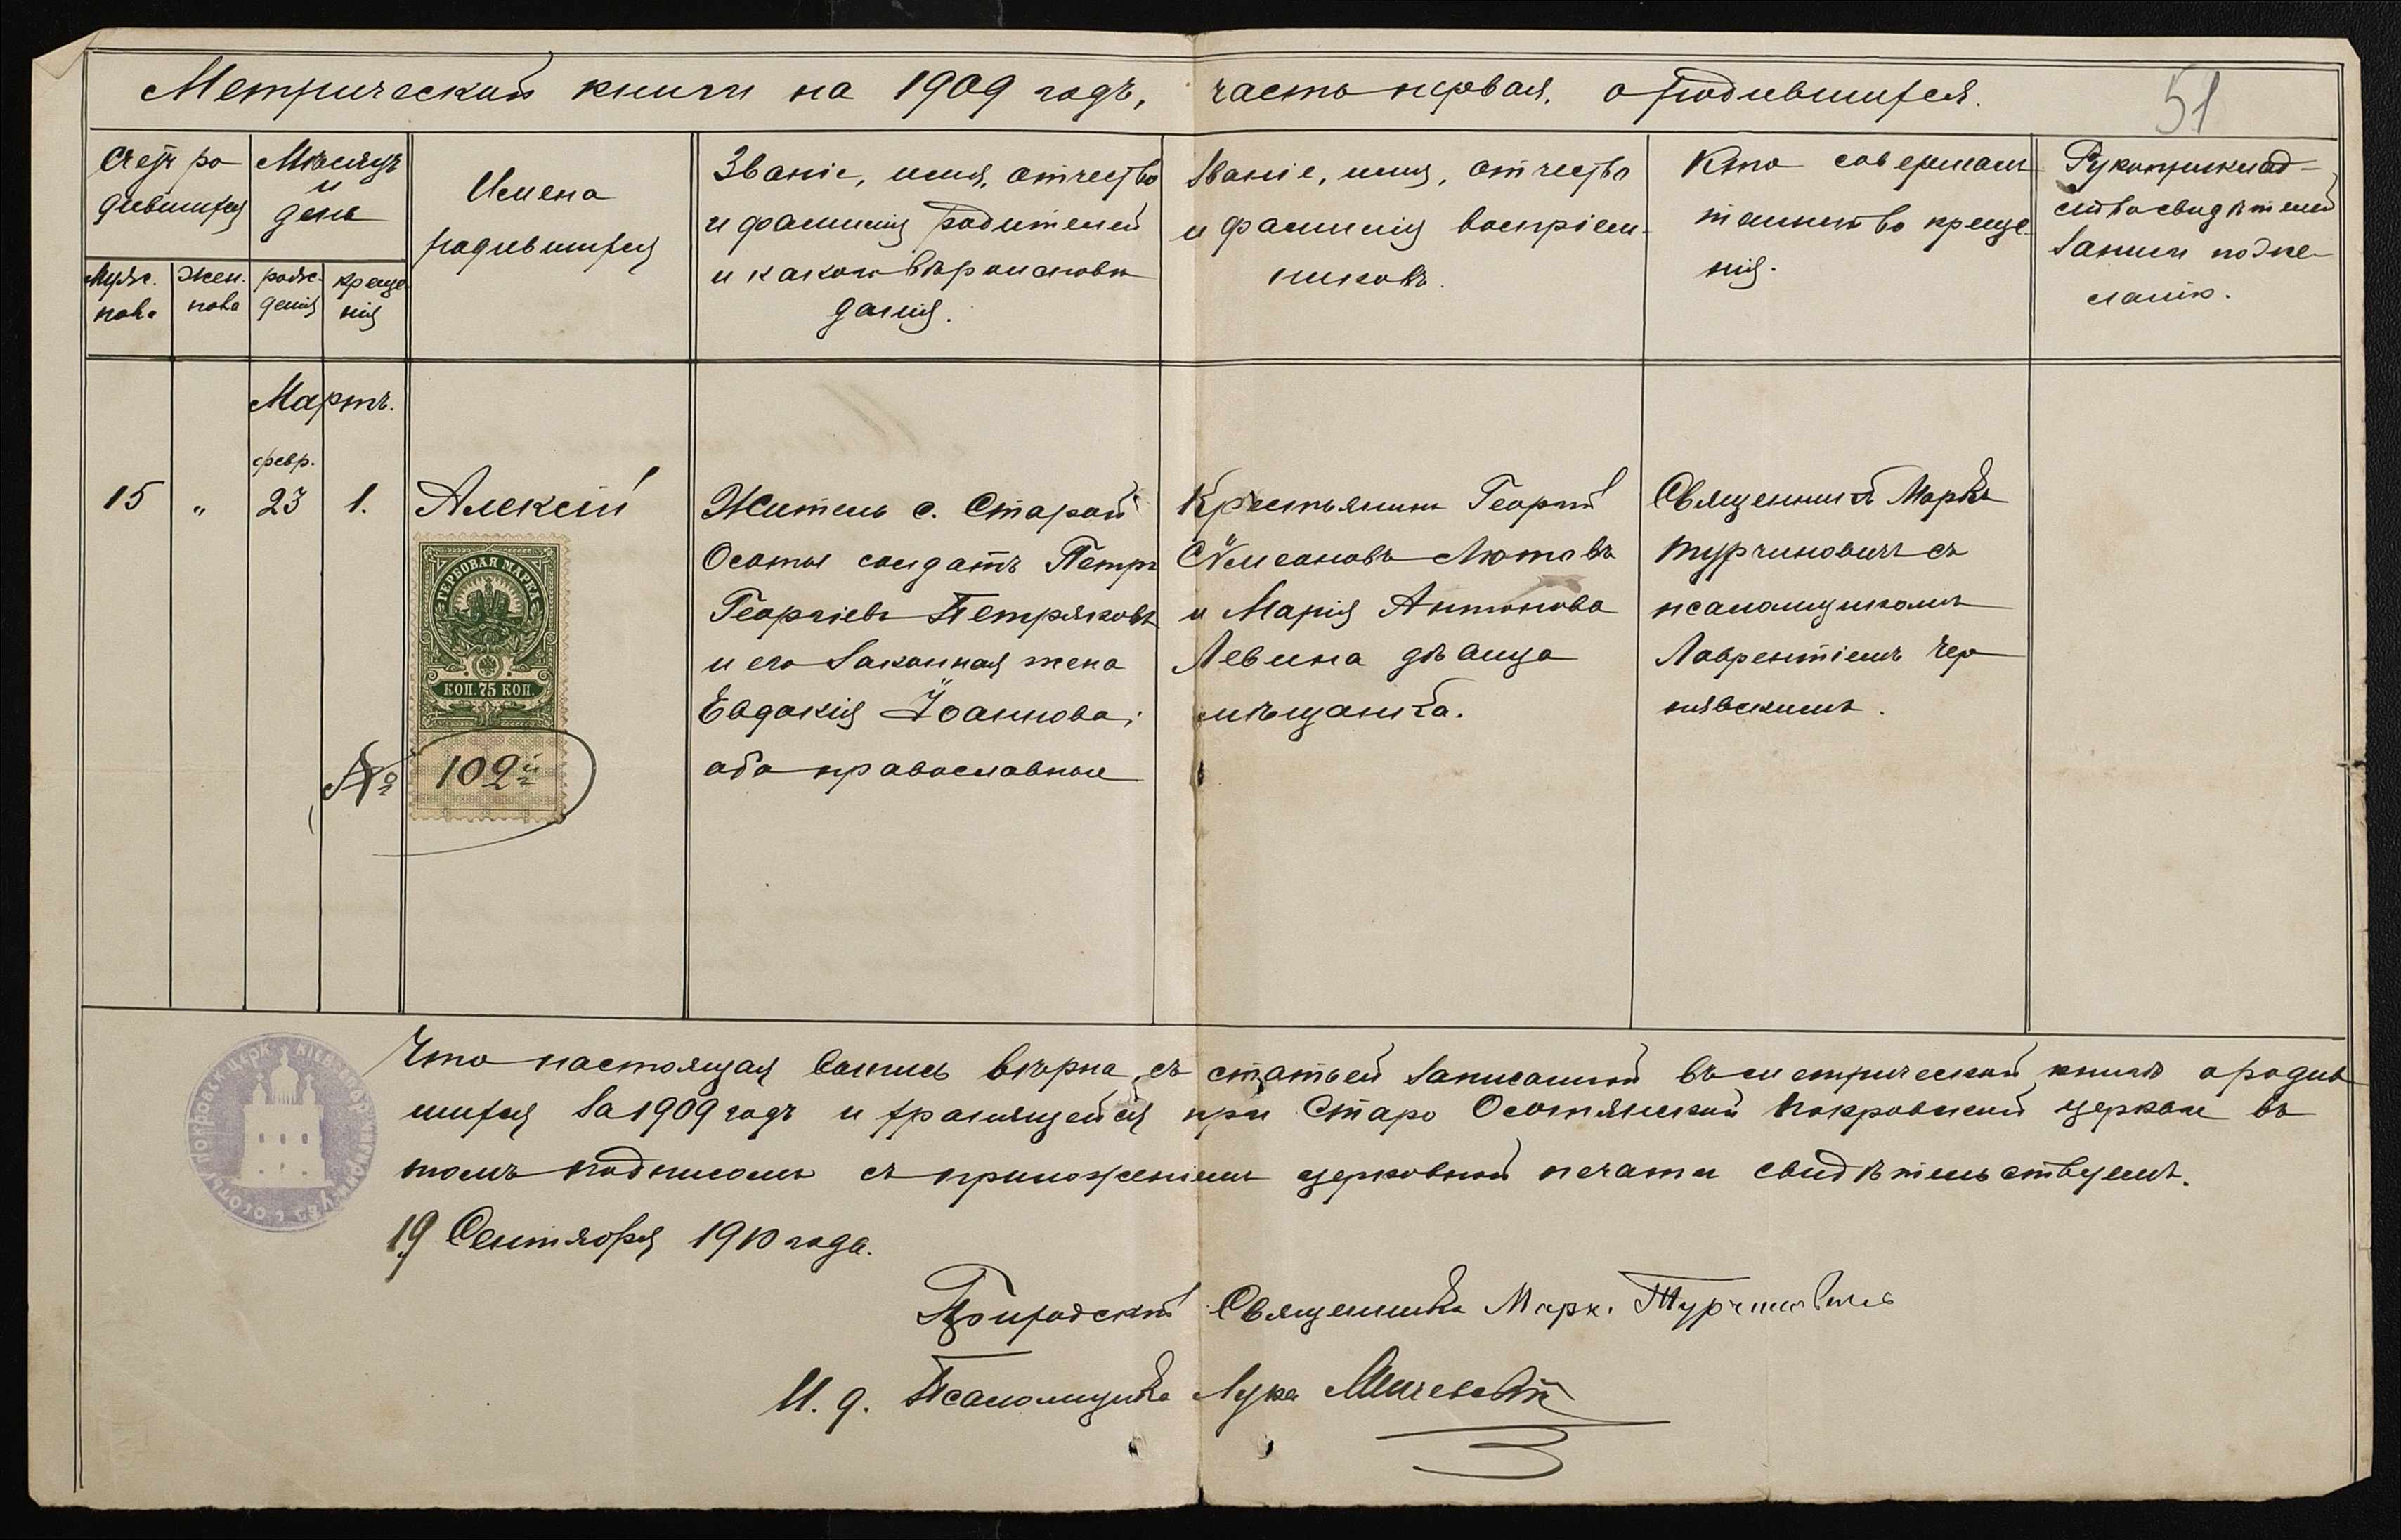 Метрической книги на 1909 годъ, часть первая, о родившихся.
51
Счетъ ро
дившихся
Мѣсяцъ
и
день
Имена
родившихся
Званіе, имя, отчество
и фамилія родителей
и какого вѣроисповѣ
данія.
Званіе, имя, отчество
и фамилія воспріем-
никовъ.
Кто совершалъ
таинство креще-
нія.
Рукоприклад-
ство свидѣтелей
записи по же-
ланію.
Муж.
пола
Жен.
пола
рож-
денія
креще
нія
Мартъ.
февр.
15 „ 23 1.
Алексій
Житель с. Старой
Осоты солдатъ Петръ
Георгіевъ Петряковъ
и его законная жена
Евдокія Іоаннова;
оба православные
Крестьянинъ Георгій
Сѵмеоновъ Лютовъ
и Марія Антонова
Левина дѣвица
мѣщанка.
Священникъ Маркъ
Турчиновичъ съ
псаломщикомъ
Лаврентіемъ Чер
нявскимъ.
ГЕРБОВАЯ МАРКА
КОП. 75 КОП.
№ 102й
Что настоящая запись вѣрна съ статьей записанной въ метрической книгѣ о родив
шихся за 1909 годъ и хранящейся при Старо Осотянской Покровской церкви въ
томъ подписомъ съ приложеніемъ церковной печати свидѣтельствуемъ.
19 Сентября 1910 года.
Приходскій Священникъ Марк. Турчиновичъ
И. д. Псаломщика Лука